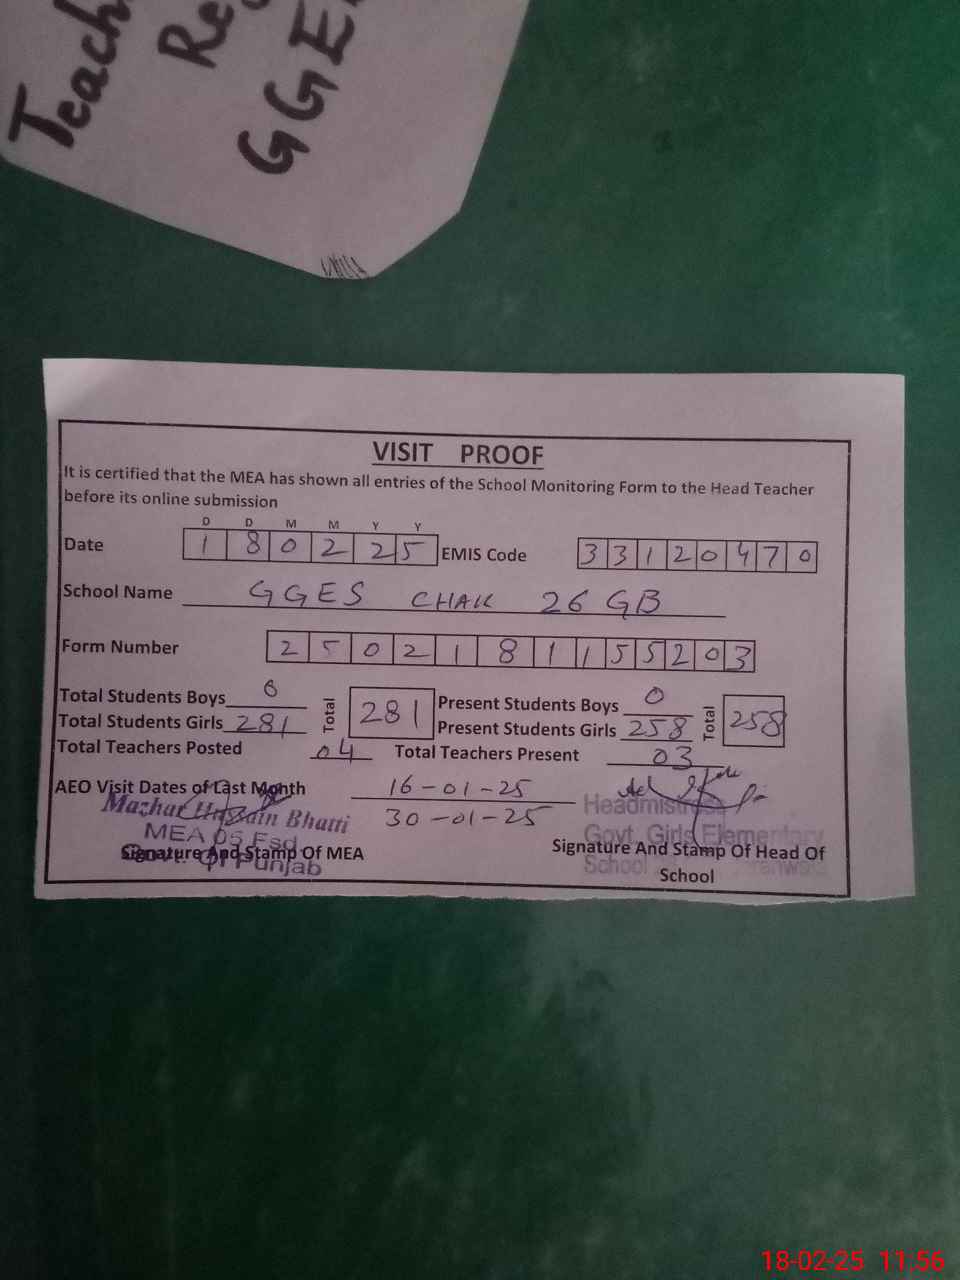 Teach
Re
GGE
VISIT PROOF
It is certified that the MEA has shown all entries of the School Monitoring Form to the Head Teacher
before its online submission
D D M M Y Y
Date 1 8 0 2 2 5 EMIS Code 3 3 1 2 0 4 7 0
School Name GGES CHAK 26 GB
Form Number 2 5 0 2 1 8 1 1 5 5 2 0 3
Total Students Boys 0 Total 281 Present Students Boys 0 Total 258
Total Students Girls 281 Present Students Girls 258
Total Teachers Posted 04 Total Teachers Present 03
AEO Visit Dates of Last Month 16-01-25
30-01-25
Mazhar Hussain Bhatti
MEA 05 Fsd
Govt. Of Punjab
Signature And Stamp Of MEA
Headmistress
Govt. Girls Elementary
School
Signature And Stamp Of Head Of
School
18-02-25 11.56